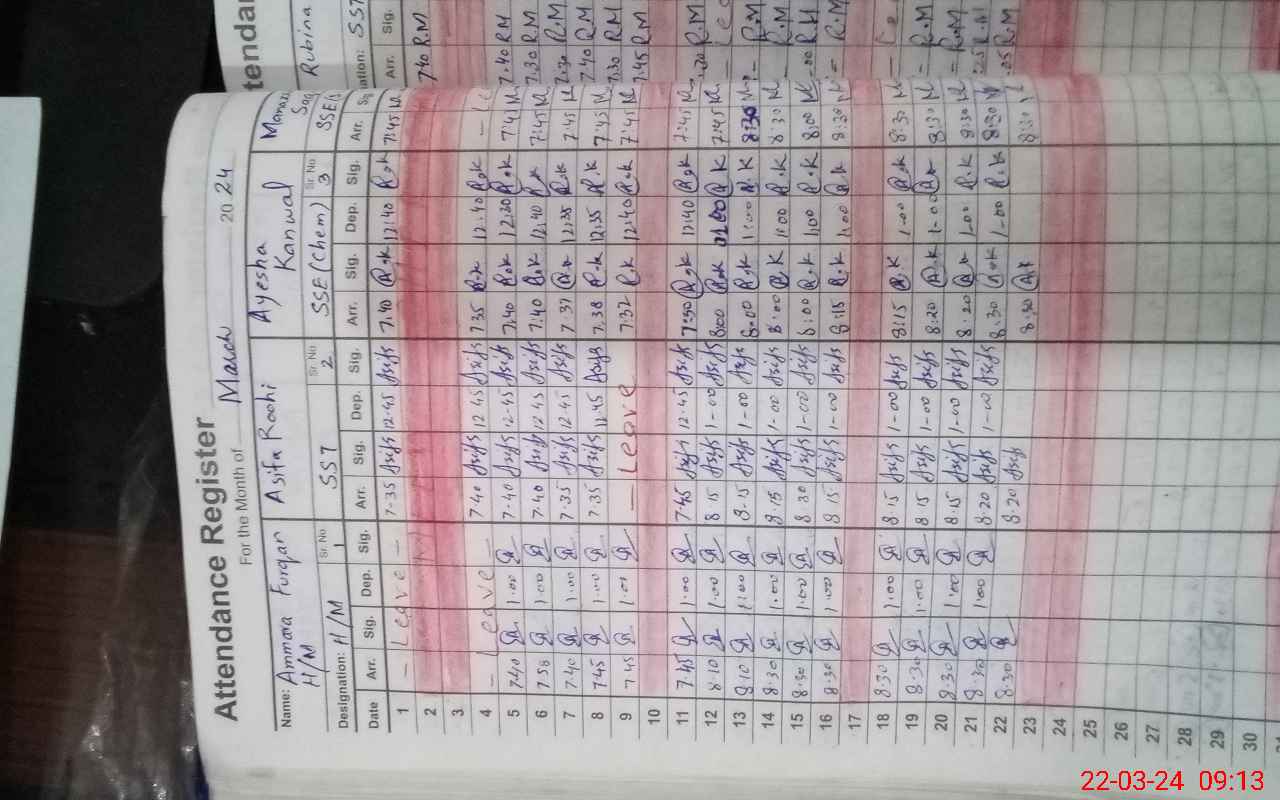 Attendance Register
For the Month of March 2024
Name: Ammara Furqan H/M Asifa Roohi Ayesha Kanwal
Designation: H/M Sr. No 1 SST Sr. No 2 SSE (Chem) Sr. No 3 SSE
Date Arr. Sig. Dep. Sig. Arr. Sig. Dep. Sig. Arr. Sig. Dep. Sig. Arr.
1 - Leave - 7.35 Asifa 12.45 Asifa 7.40 A.K 12:40 A.K 7:45
2
3
4 - Leave - 7.40 Asifa 12.45 Asifa 7.35 A.K 12:40 A.K
5 7.40 1.00 7.40 Asifa 12.45 Asifa 7.40 A.K 12:30 A.K 7:45
6 7.38 1.00 7.40 Asifa 12.45 Asifa 7.40 A.K 12.40 A.K 7:45
7 7.40 1.00 7.35 Asifa 12.45 Asifa 7.37 A.K 12:35 A.K 7:45
8 7.45 1.00 7.35 Asifa 12.45 Asifa 7.38 A.K 12:35 A.K 7:45
9 7.45 1.00 - Leave 7:32 A.K 12:40 A.K 7:45
10
11 7.45 1.00 7.45 Asifa 12.45 Asifa 7:50 A.K 12:40 A.K 7:45
12 8.10 1.00 8.15 Asifa 1-00 Asifa 8:00 A.K 01:00 A.K 7:45
13 8.10 1.00 8.15 Asifa 1-00 Asifa 8:00 A.K 1:00 A.K 8:30
14 8.30 1.00 8.15 Asifa 1-00 Asifa 8:00 A.K 1:00 A.K 8:30
15 8.30 1.00 8.30 Asifa 1-00 Asifa 8:00 A.K 1:00 A.K 8:00
16 8.30 1.00 8.15 Asifa 1-00 Asifa 8:15 A.K 1:00 A.K 8:30
17
18 8.30 1.00 8.15 Asifa 1-00 Asifa 8:15 A.K 1-00 A.K 8:30
19 8.30 1.00 8.15 Asifa 1-00 Asifa 8:20 A.K 1-00 A.K 8:30
20 8.30 1.00 8.15 Asifa 1-00 Asifa 8:20 A.K 1.00 A.K 8:30
21 8.30 1.00 8.20 Asifa 1-00 Asifa 8:30 A.K 1-00 A.K 8:30
22 8.30 8.20 Asifa 8:30 A.K 8:30
23
24
25
26
27
28
29
30
Rubina
SST
Arr. Sig.
7.40 R.M
7.40 R.M
7.30 R.M
7.30 R.M
7.40 R.M
7.30 R.M
7.45 R.M
22-03-24 09:13